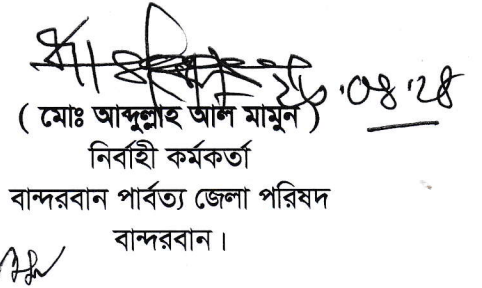 ( মোঃ আব্দুল্লাহ আল মামুন )
নির্বাহী কর্মকর্তা
বান্দরবান পার্বত্য জেলা পরিষদ
বান্দরবান।